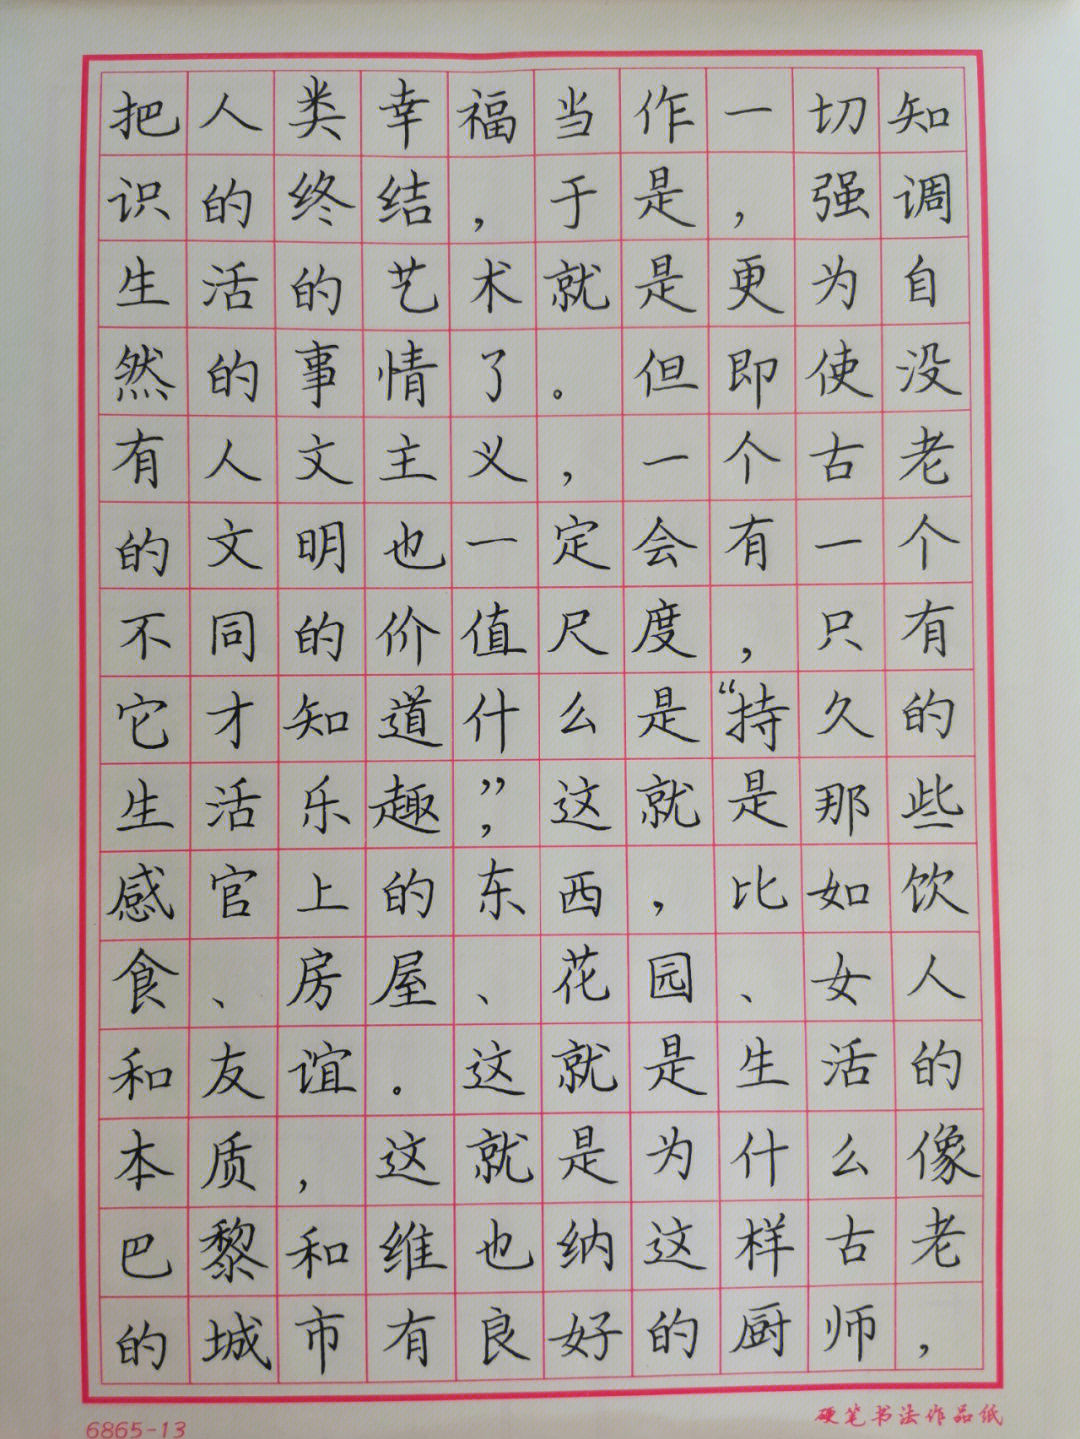 把人类幸福当作一切知
识的终结，于是，强调
生活的艺术就是更为自
然的事情了。但即使没
有人文主义，一个古老
的文明也一定会有一个
不同的价值尺度，只有
它才知道什么是“持久的
生活乐趣”，这就是那些
感官上的东西，比如饮
食、房屋、花园、女人
和友谊。这就是生活的
本质，这就是为什么像
巴黎和维也纳这样古老
的城市有良好的厨师，
6865-13
硬笔书法作品纸